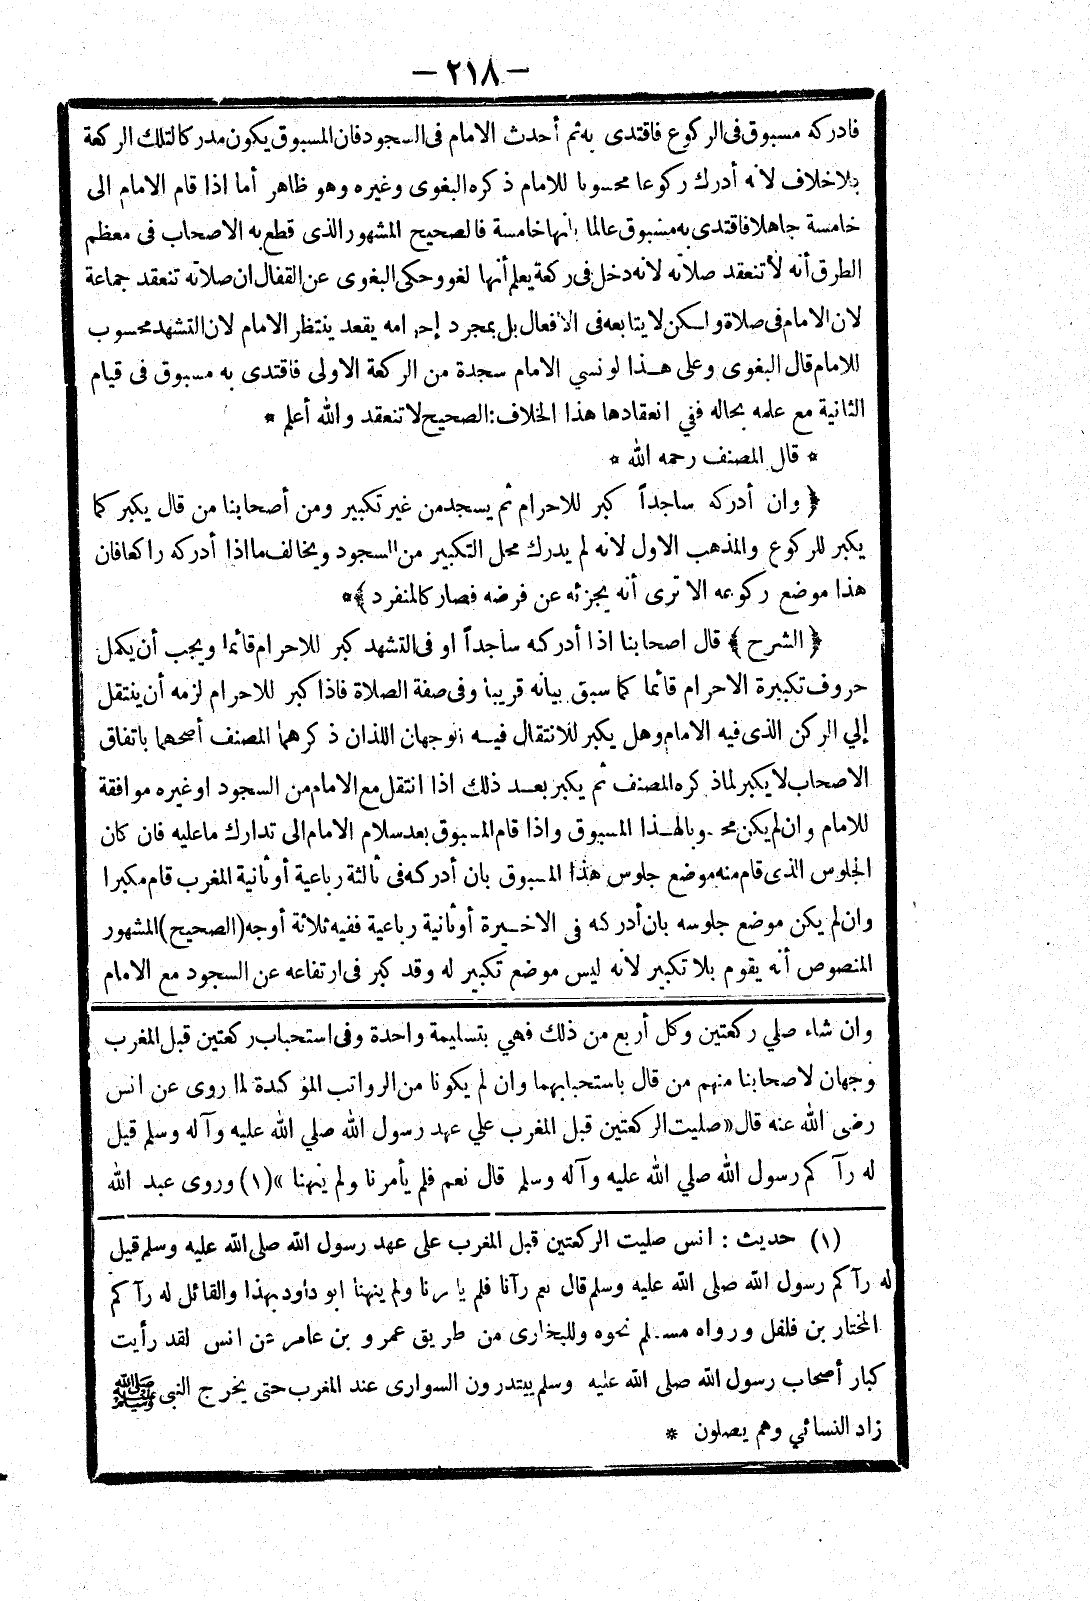 — ٢١٨ —
فادركه مسبوق فى الركوع فاقتدى به ثم أحدث الامام فى السجود فان المسبوق يكون مدركا لتلك الركعة
بلا خلاف لانه أدرك ركوعا محسوبا للامام ذكره البغوى وغيره وهو ظاهر أما اذا قام الامام الى
خامسة جاهلا فاقتدى به مسبوق عالما بانها خامسة فالصحيح المشهور الذى قطع به الاصحاب فى معظم
الطرق أنه لا تنعقد صلاته لانه دخل فى ركعة يعلم أنها لغو وحكى البغوى عن القفال ان صلاته تنعقد جماعة
لان الامام فى صلاة ولكن لا يتابعه فى الافعال بل بمجرد إحرامه يقعد ينتظر الامام لان التشهد محسوب
للامام قال البغوى وعلى هذا لو نسي الامام سجدة من الركعة الاولى فاقتدى به مسبوق فى قيام
الثانية مع علمه بحاله ففي انعقادها هذا الخلاف: الصحيح لا تنعقد والله أعلم *
* قال المصنف رحمه الله *
﴿ وان أدركه ساجداً كبر للاحرام ثم يسجد من غير تكبير ومن أصحابنا من قال يكبر كما
يكبر للركوع والمذهب الاول لانه لم يدرك محل التكبير من السجود ويخالف ما اذا أدركه راكعا فان
هذا موضع ركوعه الا ترى أنه يجزئه عن فرضه فصار كالمنفرد ﴾*
﴿ الشرح ﴾ قال اصحابنا اذا أدركه ساجداً او فى التشهد كبر للاحرام قائما ويجب أن يكمل
حروف تكبيرة الاحرام قائما كما سبق بيانه قريبا وفى صفة الصلاة فاذا كبر للاحرام لزمه أن ينتقل
إلي الركن الذى فيه الامام وهل يكبر للانتقال فيه الوجهان اللذان ذكرهما المصنف أصحهما باتفاق
الاصحاب لا يكبر لما ذكره المصنف ثم يكبر بعد ذلك اذا انتقل مع الامام من السجود او غيره موافقة
للامام وان لم يكن محسوبا لهذا المسبوق واذا قام المسبوق بعد سلام الامام الى تدارك ما عليه فان كان
الجلوس الذى قام منه موضع جلوس هذا المسبوق بان أدركه فى ثالثة رباعية أو ثانية المغرب قام مكبرا
وان لم يكن موضع جلوسه بان أدركه فى الاخيرة أو ثانية رباعية ففيه ثلاثة أوجه (الصحيح) المشهور
المنصوص أنه يقوم بلا تكبير لانه ليس موضع تكبير له وقد كبر فى ارتفاعه عن السجود مع الامام
وان شاء صلي ركعتين وكل أربع من ذلك فهي بتسليمة واحدة وفى استحباب ركعتين قبل المغرب
وجهان لاصحابنا منهم من قال باستحبابهما وان لم يكونا من الرواتب المؤكدة لما روى عن انس
رضى الله عنه قال «صليت الركعتين قبل المغرب علي عهد رسول الله صلي الله عليه وآله وسلم قيل
له رآكم رسول الله صلي الله عليه وآله وسلم قال نعم فلم يأمرنا ولم ينهنا» (١) وروى عبد الله
(١) حديث: انس صليت الركعتين قبل المغرب على عهد رسول الله صلى الله عليه وسلم قيل
له رآكم رسول الله صلى الله عليه وسلم قال نعم رآنا فلم يامرنا ولم ينهنا ابو داود بهذا والقائل له رآكم
المختار بن فلفل ورواه مسلم نحوه وللبخارى من طريق عمرو بن عامر عن انس لقد رأيت
كبار أصحاب رسول الله صلى الله عليه وسلم يبتدرون السوارى عند المغرب حتى يخرج النبى ﷺ
زاد النسائي وهم يصلون *